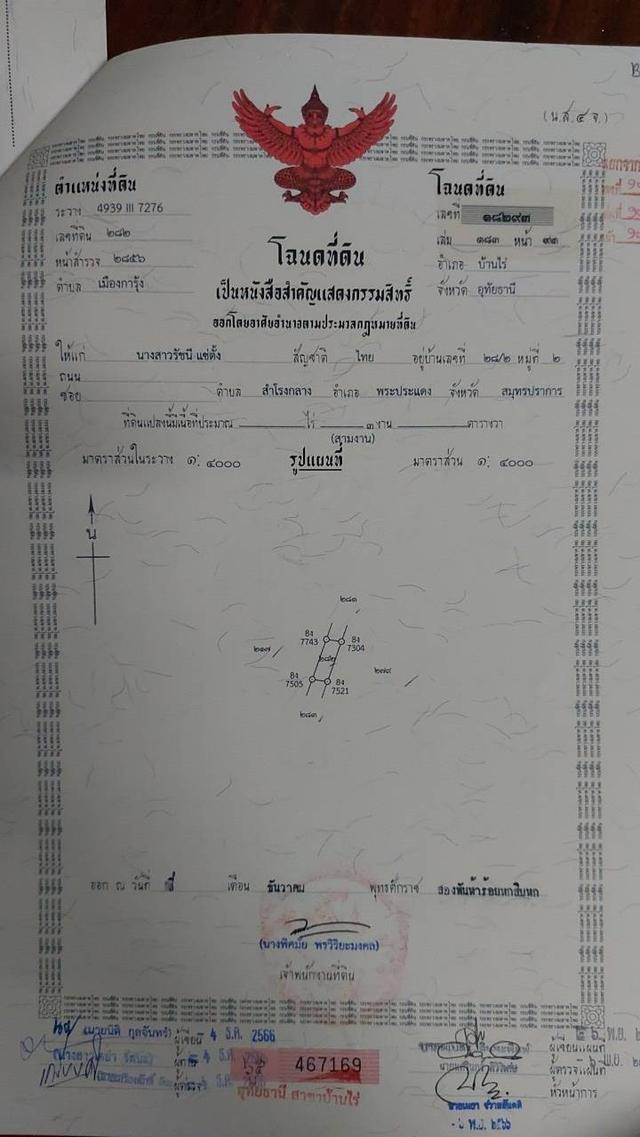 (น.ส.๔ จ.)
ตำแหน่งที่ดิน
ระวาง 4939 III 7276
เลขที่ดิน ๒๘๒
หน้าสำรวจ ๒๘๕๖
ตำบล เมืองการุ้ง
โฉนดที่ดิน
เลขที่ ๑๘๒๙๓
เล่ม ๑๘๓ หน้า ๙๓
อำเภอ บ้านไร่
จังหวัด อุทัยธานี
โฉนดที่ดิน
เป็นหนังสือสำคัญแสดงกรรมสิทธิ์
ออกโดยอาศัยอำนาจตามประมวลกฎหมายที่ดิน
ให้แก่ นางสาวรัชนี แซ่ตั้ง สัญชาติ ไทย อยู่บ้านเลขที่ ๒๘/๒ หมู่ที่ ๒
ถนน
ซอย ตำบล สำโรงกลาง อำเภอ พระประแดง จังหวัด สมุทรปราการ
ที่ดินแปลงนี้มีเนื้อที่ประมาณ ไร่ ๓ งาน ตารางวา
(สามงาน)
มาตราส่วนในระวาง ๑: ๔๐๐๐ รูปแผนที่ มาตราส่วน ๑: ๔๐๐๐
น
๒๘๑
8ง 7743
8ง 7304
๒๘๒
๒๗๙
8ง 7505
8ง 7521
๒๘๓
ออก ณ วันที่ สี่ เดือน ธันวาคม พุทธศักราช สองพันห้าร้อยหกสิบหก
(นางพิศมัย พรวิริยะมงคล)
เจ้าพนักงานที่ดิน
ผู้เขียน 4 ธ.ค. 2566
467169
อุทัยธานี สาขาบ้านไร่
ผู้เขียนแผนที่
ผู้ตรวจแผนที่
หัวหน้าการ